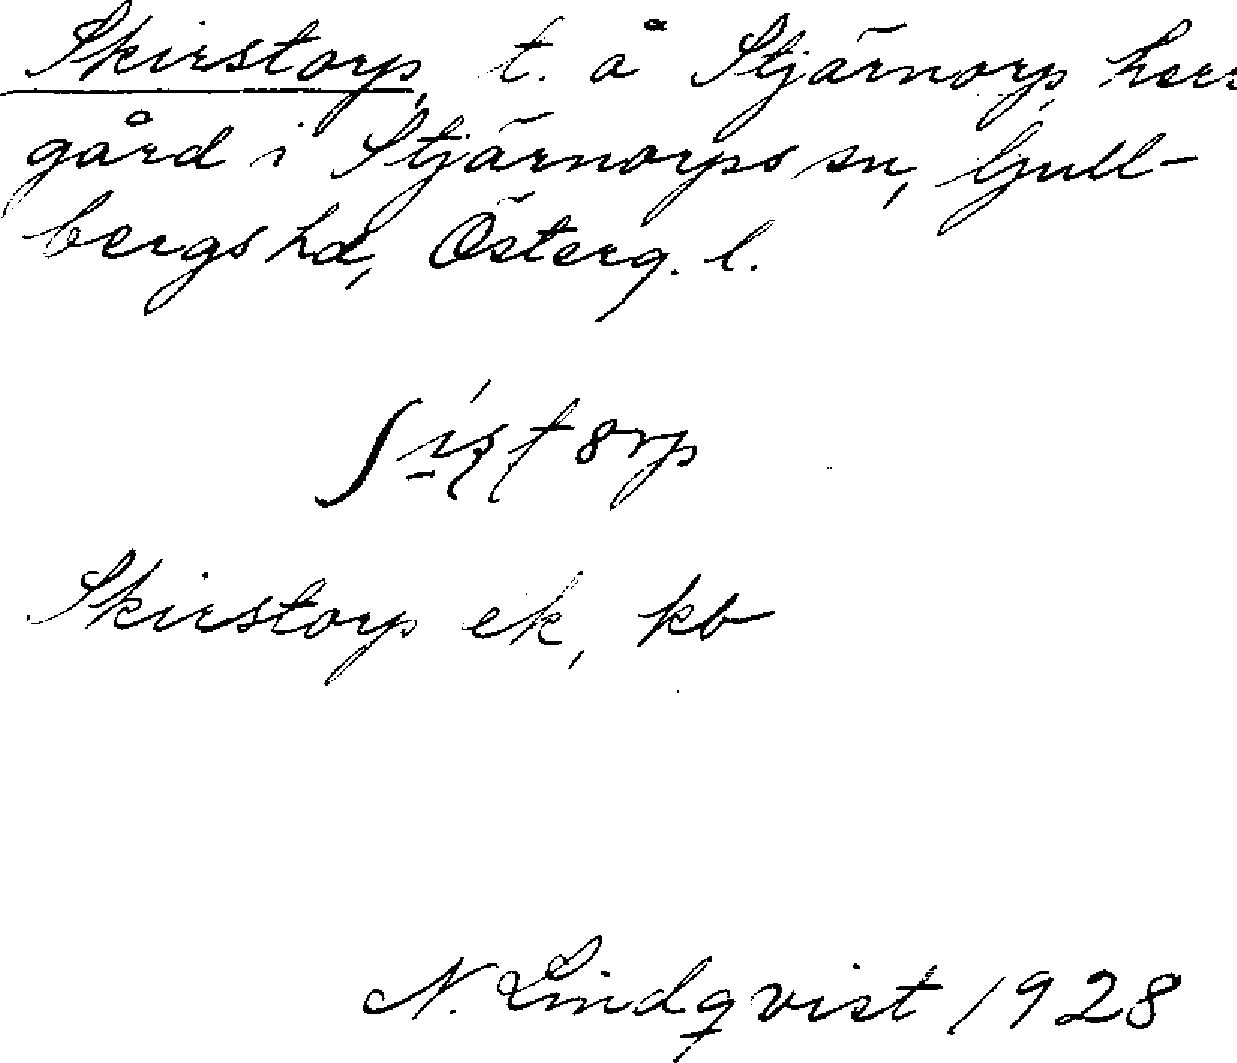 Skirstorp, t. å Stjärnorp herr
gård i Stjärnorps sn, Gull-
bergs hd, Österg. l.
Skirstorp ek, kb
N. Lindqvist 1928